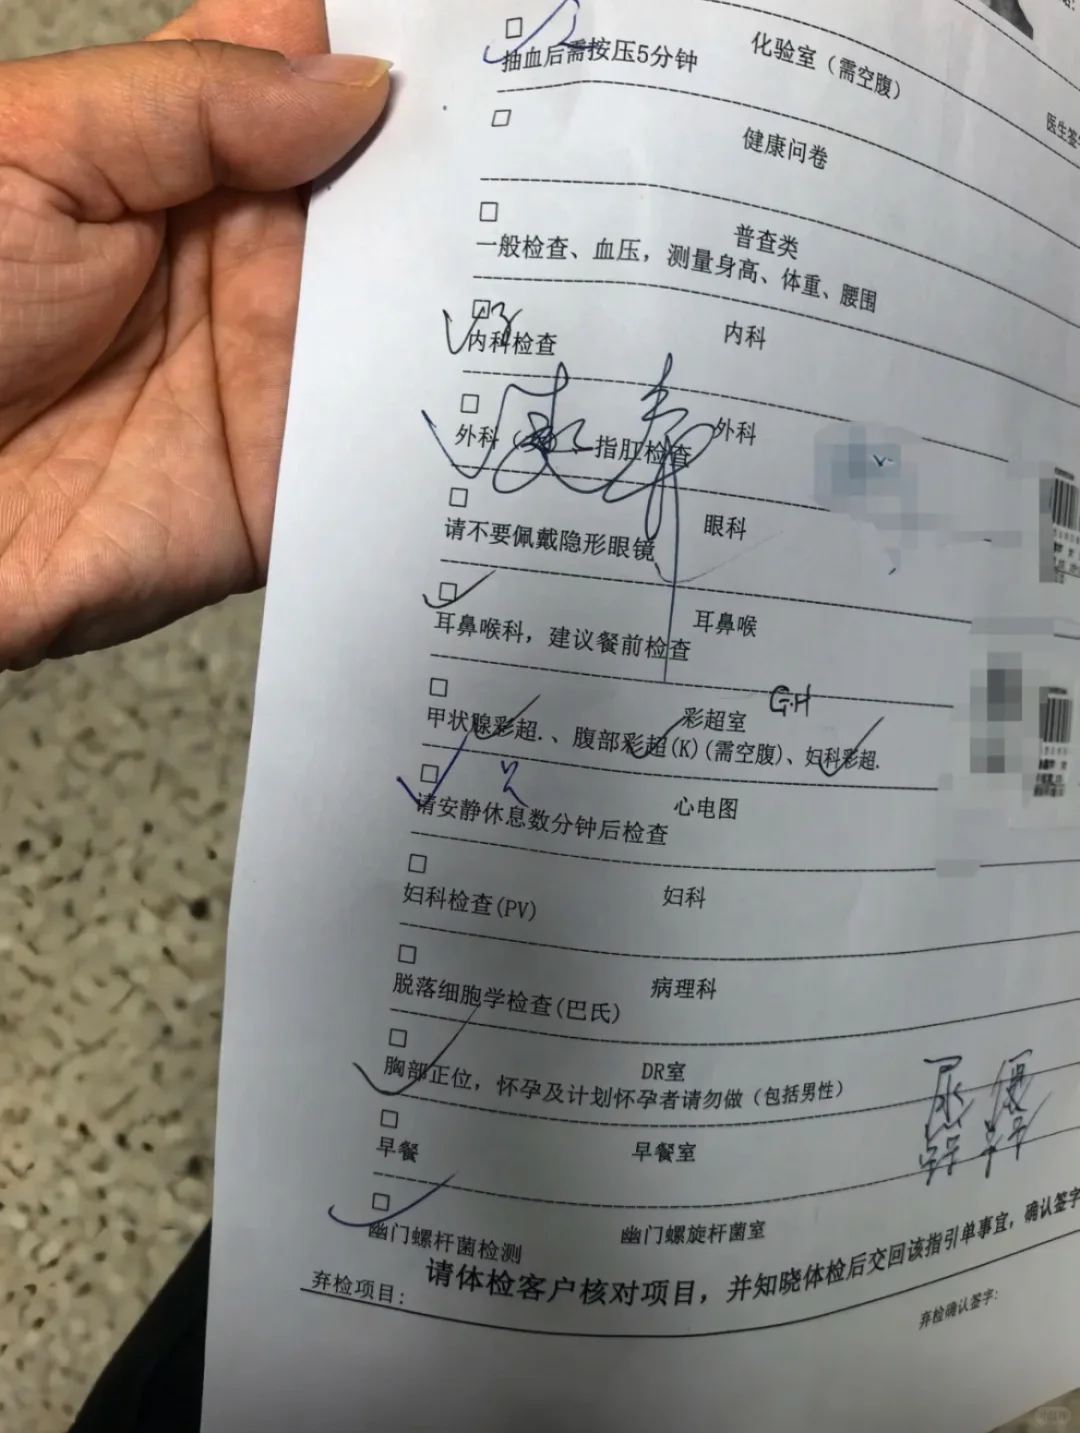 抽血后需按压5分钟
化验室（需空腹）
医生签
健康问卷
普查类
一般检查、血压，测量身高、体重、腰围
内科
内科检查
外科
外科
指肛检查
眼科
请不要佩戴隐形眼镜
耳鼻喉
耳鼻喉科，建议餐前检查
G.H
彩超室
甲状腺彩超.、腹部彩超(K)(需空腹)、妇科彩超.
心电图
请安静休息数分钟后检查
妇科
妇科检查(PV)
病理科
脱落细胞学检查(巴氏)
DR室
胸部正位，怀孕及计划怀孕者请勿做（包括男性）
早餐室
早餐
幽门螺旋杆菌室
幽门螺杆菌检测
请体检客户核对项目，并知晓体检后交回该指引单事宜，确认签字
弃检项目：
弃检确认签字：
小红书